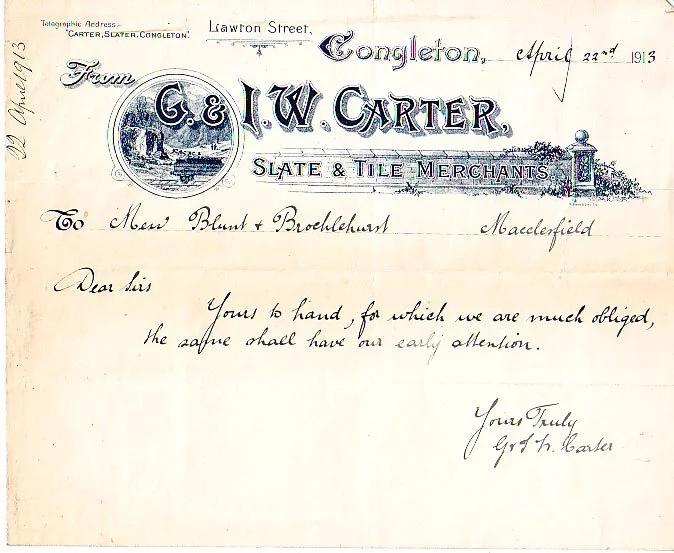 Telegraphic Address:-
"CARTER, SLATER, CONGLETON."
Lawton Street,
Congleton, April 22nd 1913
22 April 1913
From
G. & I. W. CARTER,
SLATE & TILE MERCHANTS.
To Messrs Blunt & Brocklehurst Macclesfield
Dear Sirs
Yours to hand, for which we are much obliged,
the same shall have our early attention.
Yours Truly
G & I W. Carter